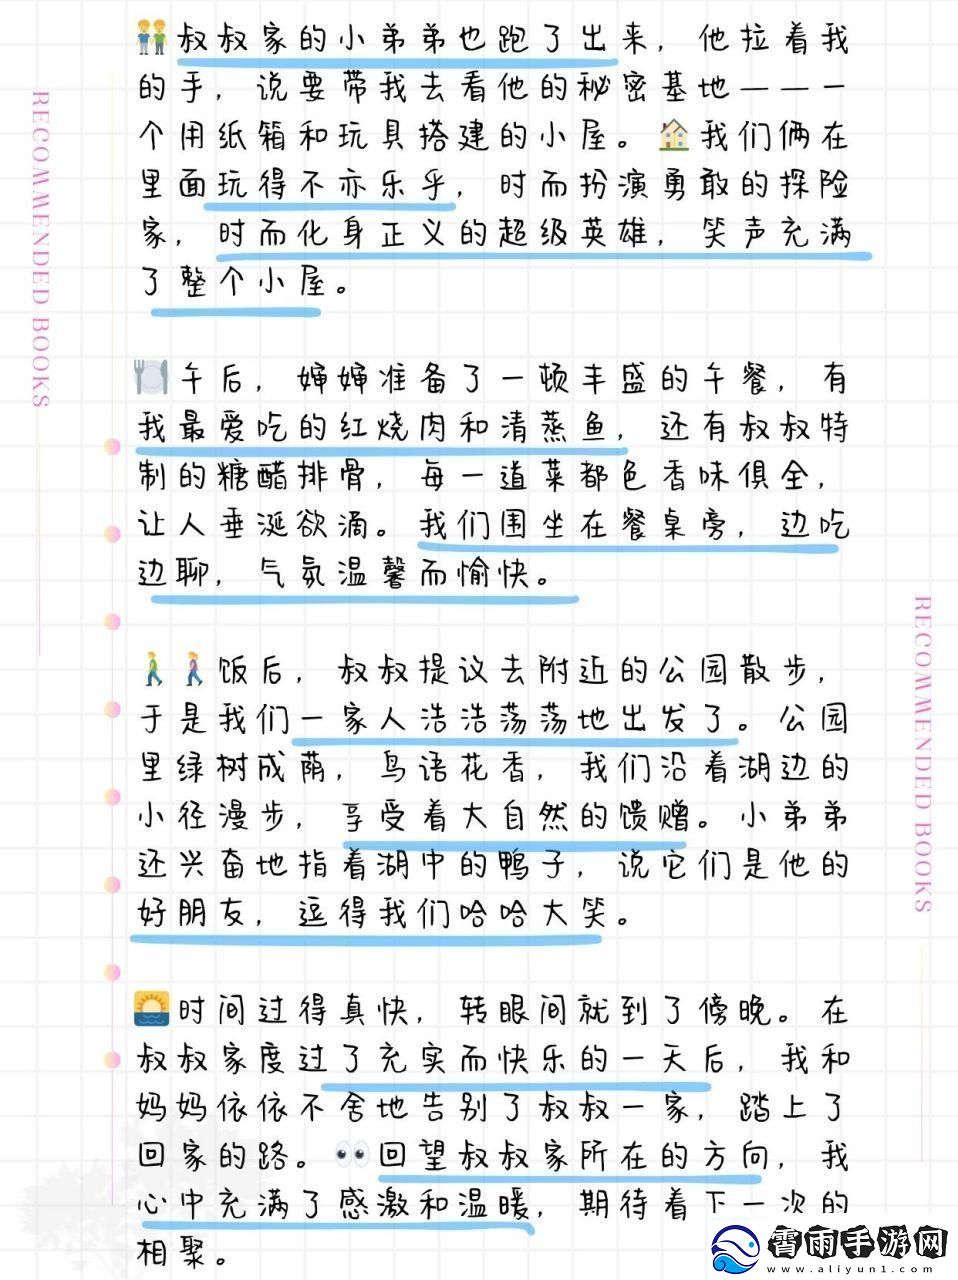 叔叔家的小弟弟也跑了出来，他拉着我
的手，说要带我去看他的秘密基地——一
个用纸箱和玩具搭建的小屋。我们俩在
里面玩得不亦乐乎，时而扮演勇敢的探险
家，时而化身正义的超级英雄，笑声充满
了整个小屋。
午后，婶婶准备了一顿丰盛的午餐，有
我最爱吃的红烧肉和清蒸鱼，还有叔叔特
制的糖醋排骨，每一道菜都色香味俱全，
让人垂涎欲滴。我们围坐在餐桌旁，边吃
边聊，气氛温馨而愉快。
饭后，叔叔提议去附近的公园散步，
于是我们一家人浩浩荡荡地出发了。公园
里绿树成荫，鸟语花香，我们沿着湖边的
小径漫步，享受着大自然的馈赠。小弟弟
还兴奋地指着湖中的鸭子，说它们是他的
好朋友，逗得我们哈哈大笑。
时间过得真快，转眼间就到了傍晚。在
叔叔家度过了充实而快乐的一天后，我和
妈妈依依不舍地告别了叔叔一家，踏上了
回家的路。回望叔叔家所在的方向，我
心中充满了感激和温暖，期待着下一次的
相聚。
RECOMMENDED BOOKS
RECOMMENDED BOOKS
霄雨手游网
www.aliyun1.com